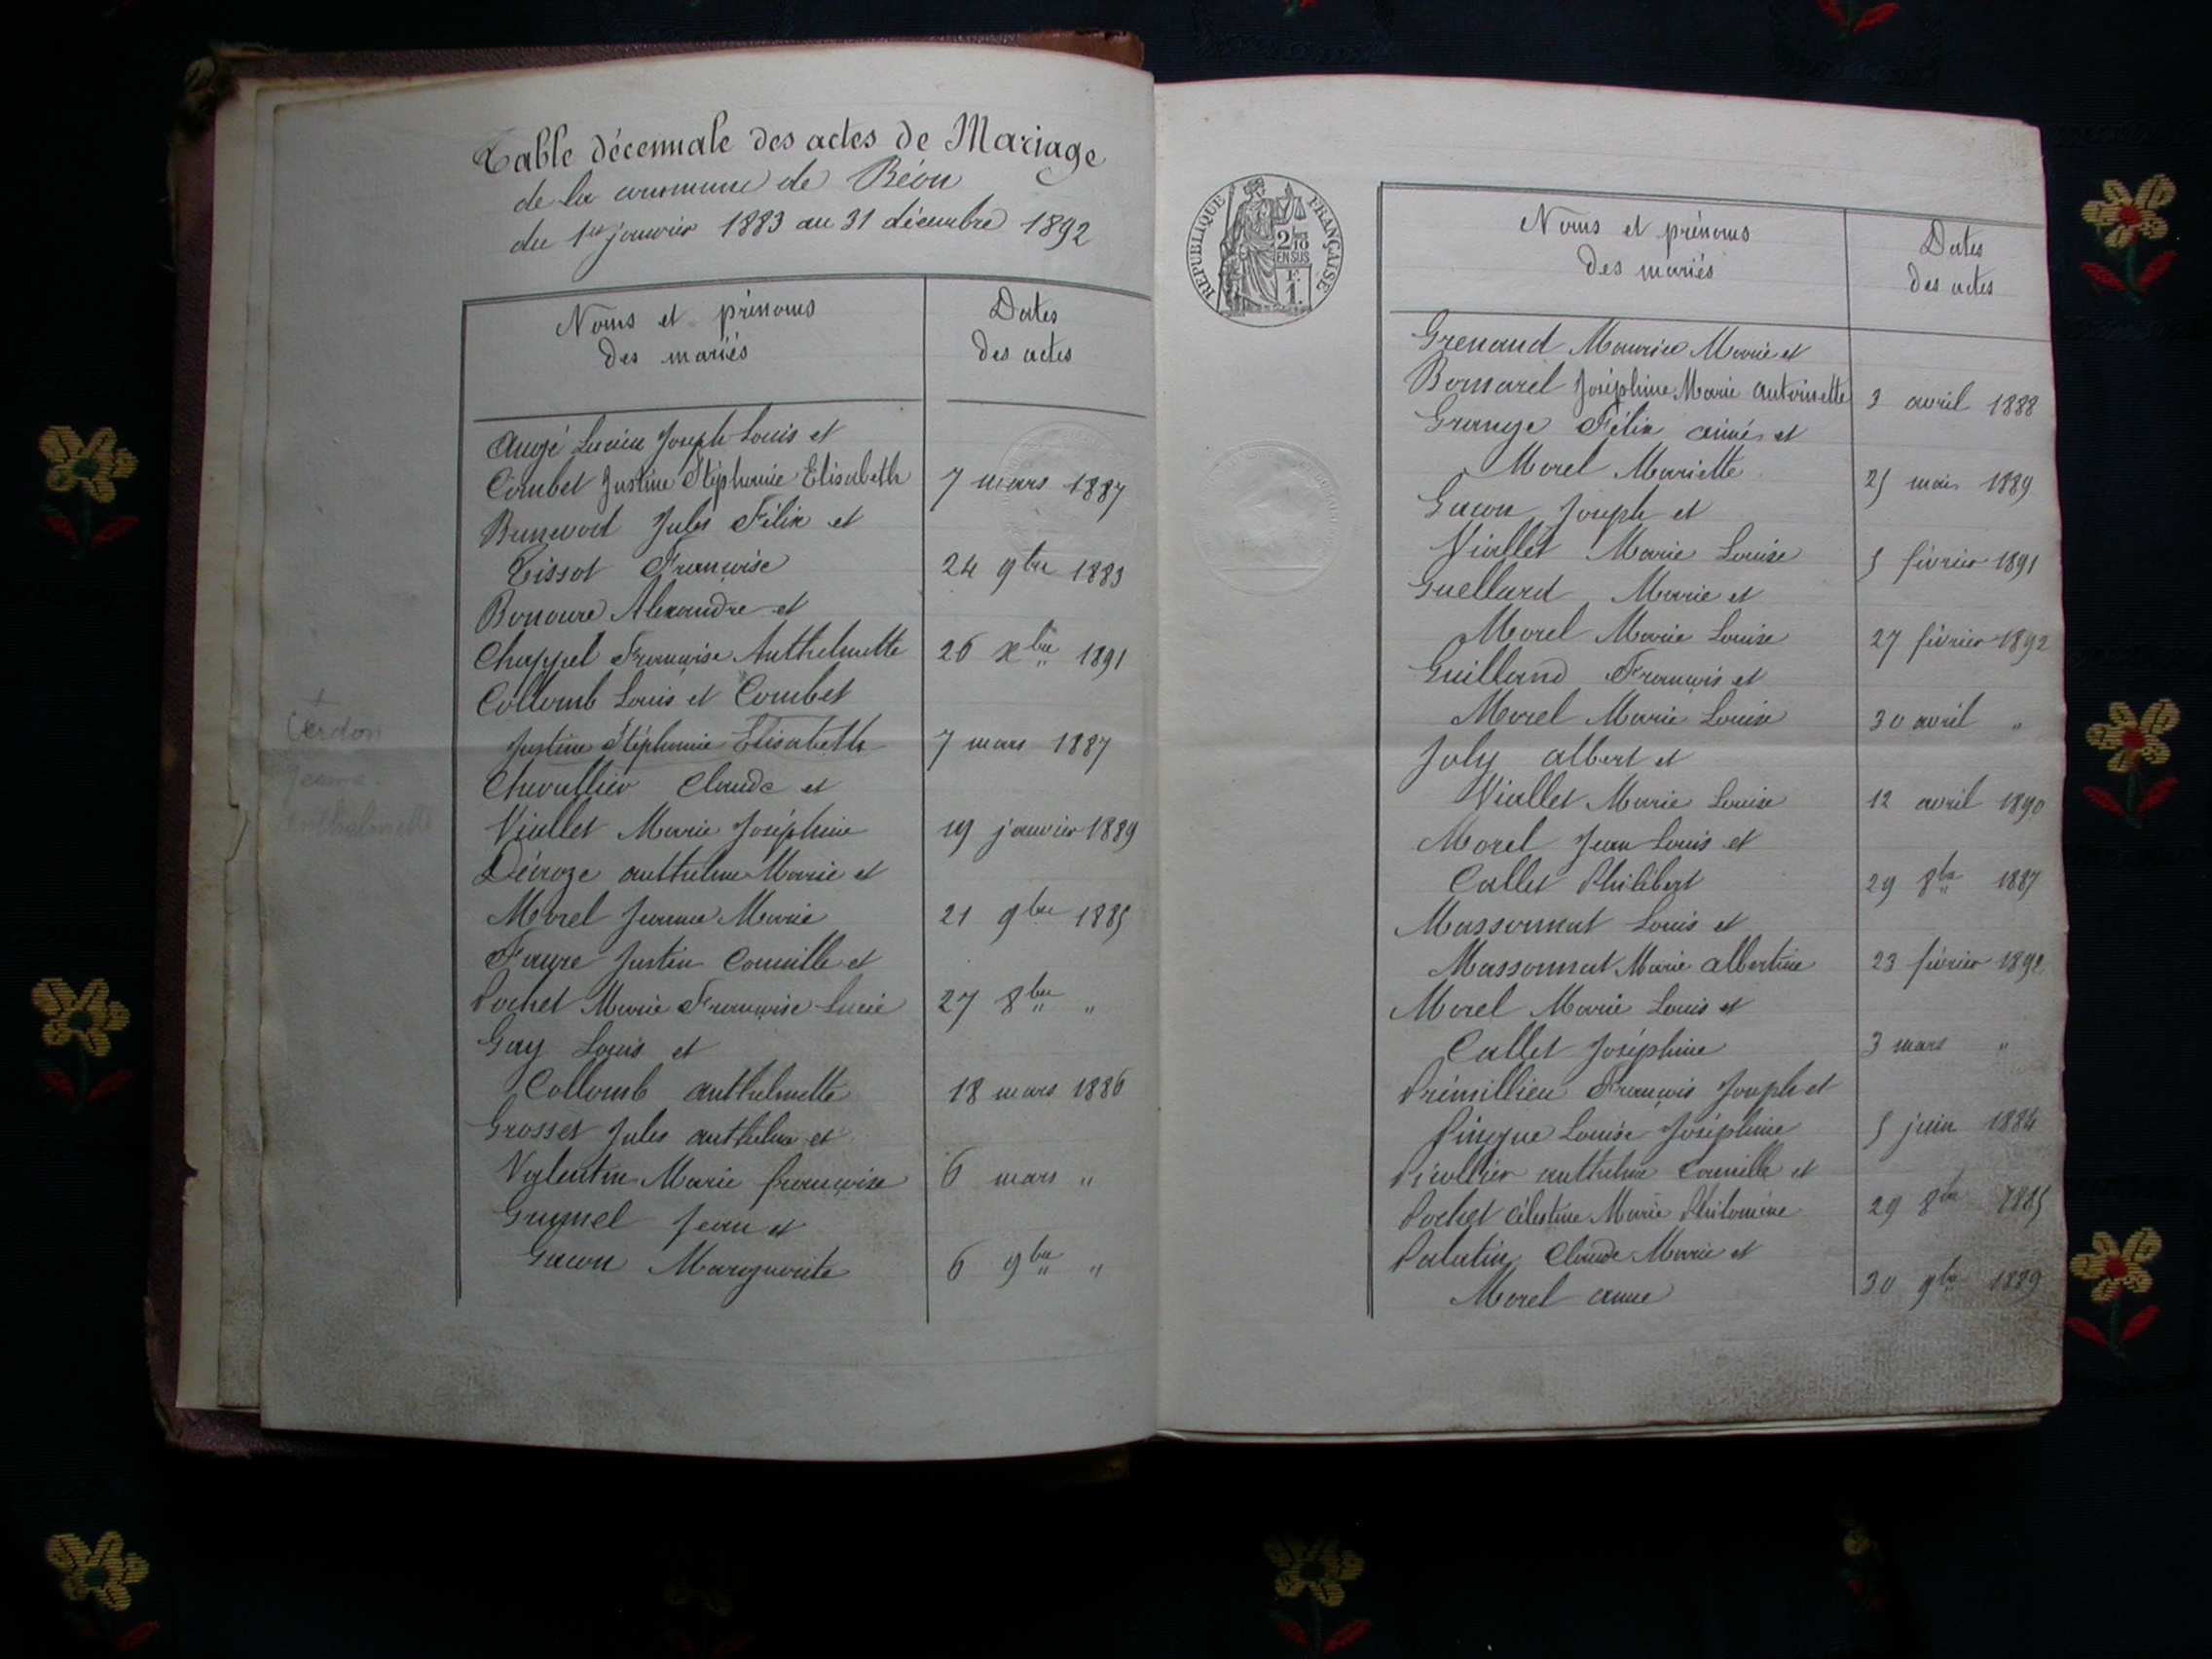 Table décennale des actes de Mariage
de la commune de Béon
du 1er janvier 1883 au 31 décembre 1892
Noms et prénoms
des mariés
Dates
des actes
Augé Lucien Joseph Louis et
Combet Justine Stéphanie Elisabeth 7 mars 1887
Jules Félix et
Tissot Françoise 24 9bre 1883
Bonoure Alexandre et
Chappel Françoise Anthelmette 26 xbre 1891
Collomb Louis et Combet
Justine Stéphanie Elisabeth 7 mars 1887
Chevallier Claude et
Viallet Marie Joséphine 19 janvier 1889
Déroze anthelme Marie et
Morel Jeanne Marie 21 9bre 1885
Faure Justin Camille et
Pochet Marie Françoise Lucie 27 8bre "
Gay Louis et
Collomb anthelmette 18 mars 1886
Grosset Jules anthelme et
Valentin Marie françoise 6 mars "
Jean et
Gacon Marguerite 6 9bre "
Verdon
Jeanne
anthelmette
REPUBLIQUE FRANÇAISE
2/10
EN SUS
F.
1.
Noms et prénoms
des mariés
Dates
des actes
Grenaud Maurice Marie et
Bonnarel Joséphine Marie antoinette 3 avril 1888
Grange Félix aimé et
Morel Mariette 25 mai 1889
Gacon Joseph et
Viallet Marie Louise 5 février 1891
Guellard Marie et
Morel Marie Louise 27 février 1892
Guilland François et
Morel Marie Louise 30 avril "
Joly albert et
Viallet Marie Louise 12 avril 1890
Morel Jean Louis et
Callet Philibert 29 8bre 1887
Massonnat Louis et
Massonnat Marie albertine 23 février 1892
Morel Marie Louis et
Callet Joséphine 3 mars "
Prémillieu François Joseph et
Pingue Louise Joséphine 5 juin 1884
anthelme Camille et
Pochet célestine Marie Philomène 29 8bre 1885
Claude Marie et
Morel anne 30 9bre 1889